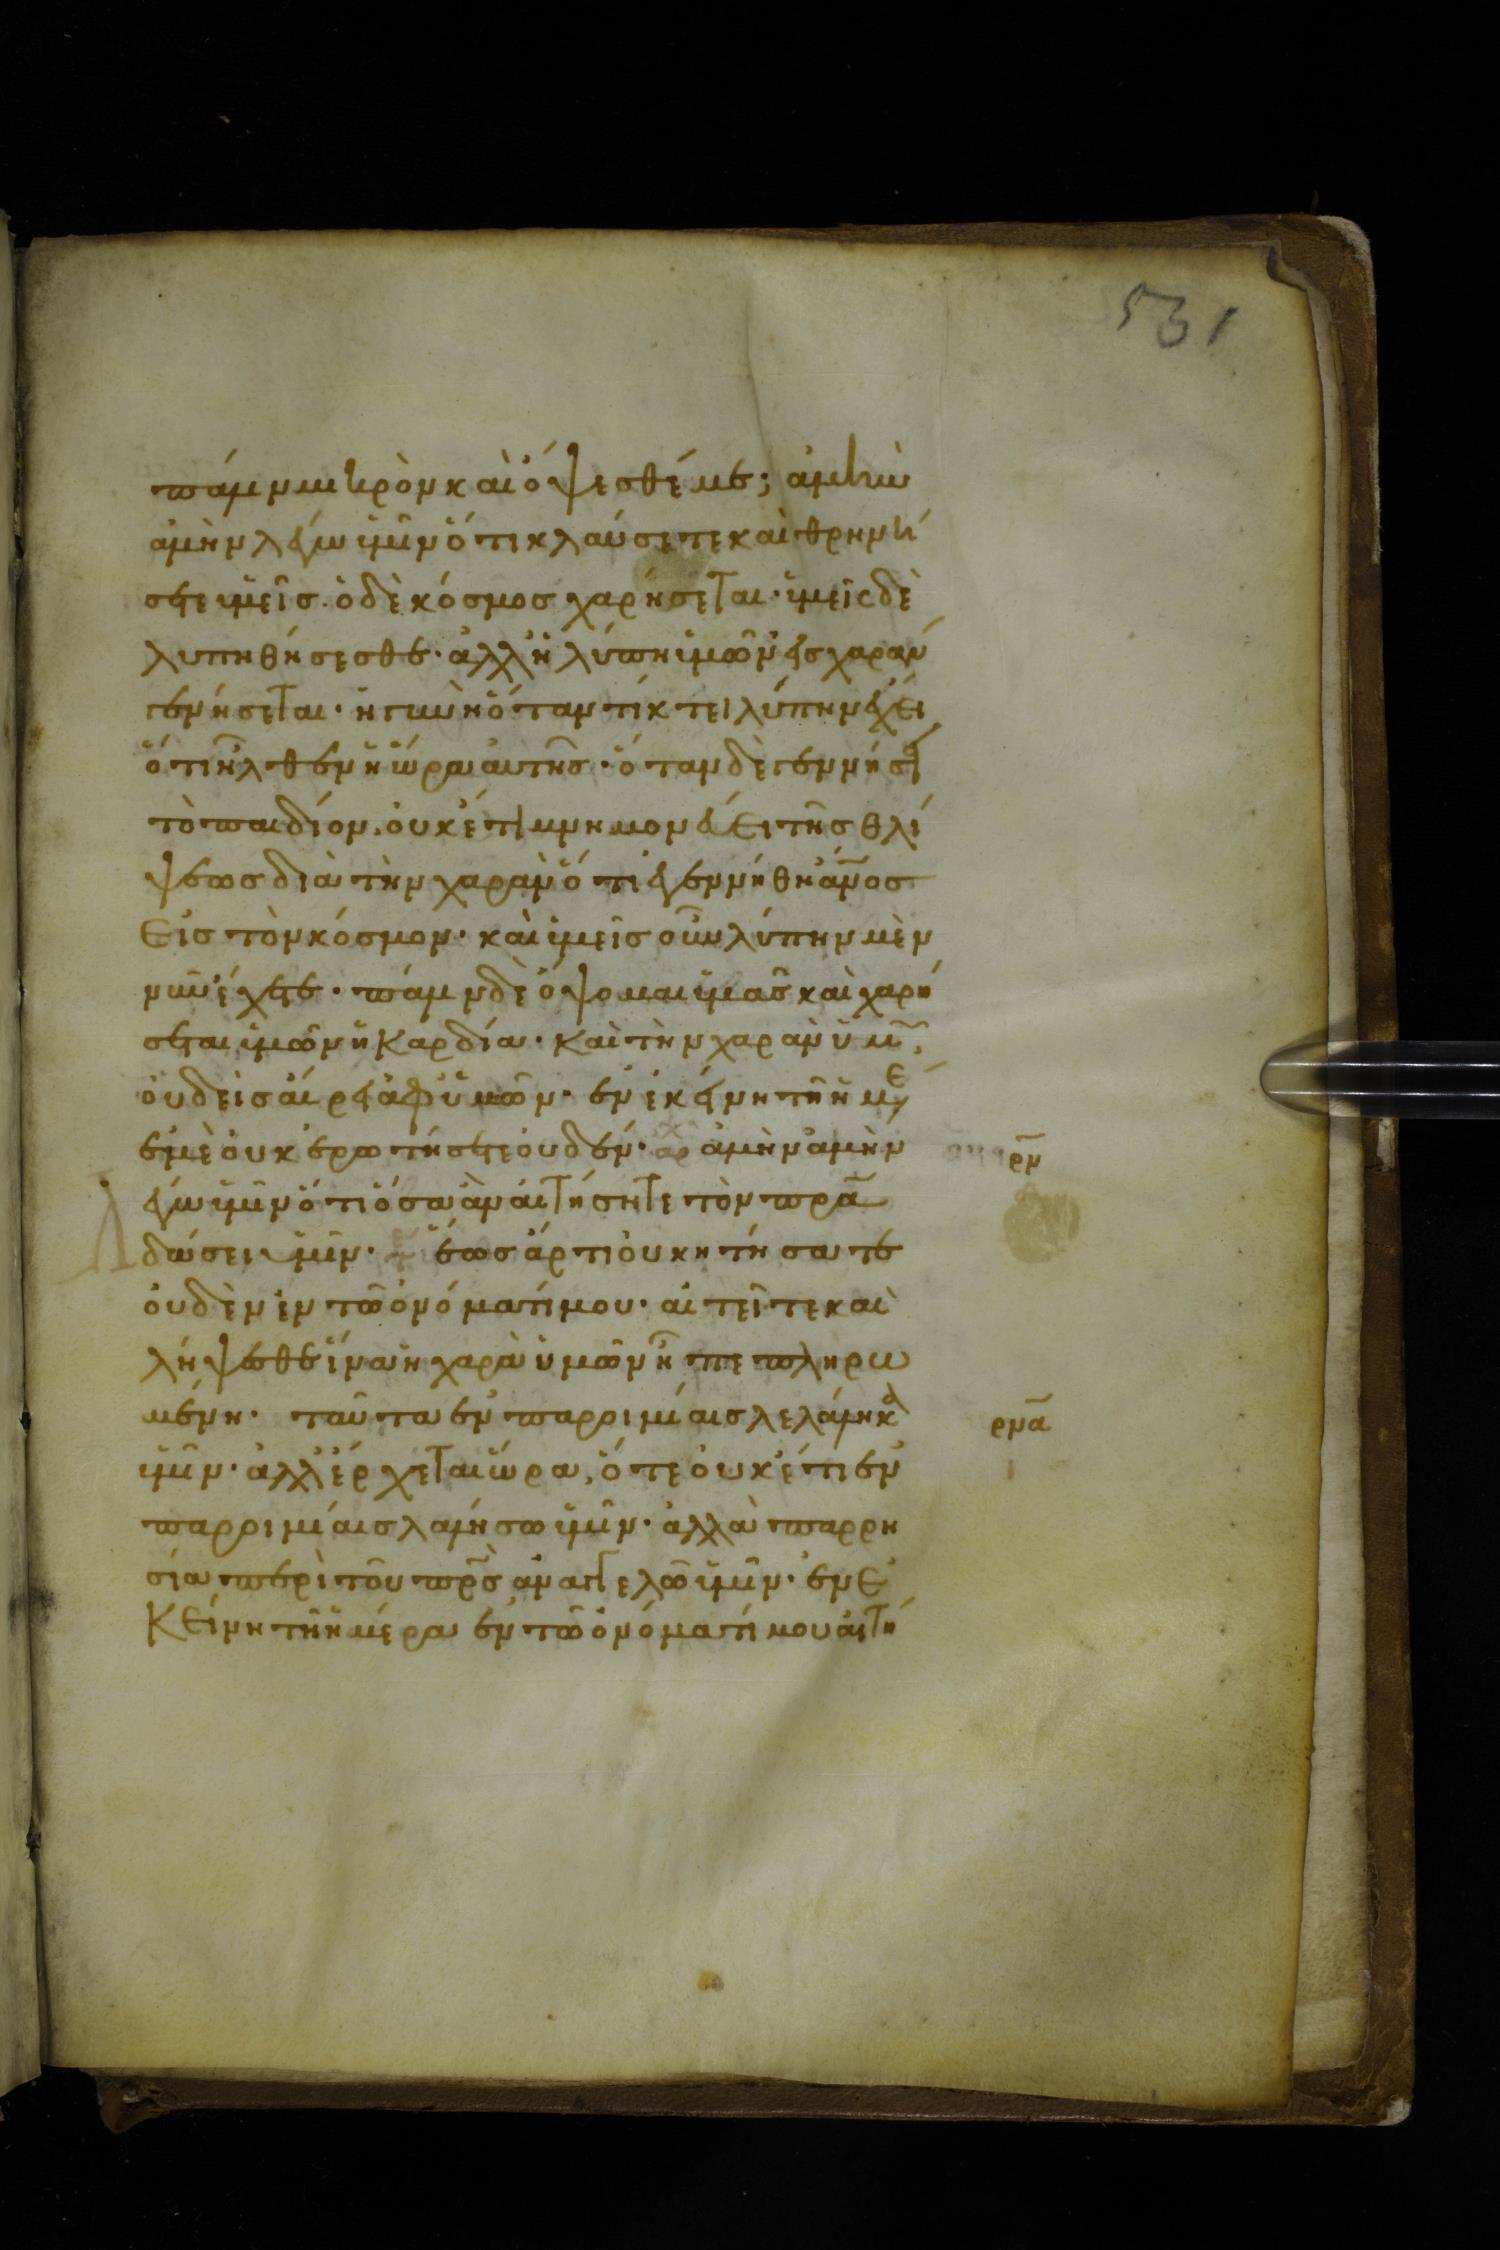 531
πάλιν μικρὸν καὶ ὄψεσθέ με; ἀμὴν
ἀμὴν λέγω ὑμῖν ὅτι κλαύσετε καὶ θρηνή
σετε ὑμεῖς· ὁ δὲ κόσμος χαρήσεται· ὑμεῖς δὲ
λυπηθήσεσθε· ἀλλ' ἡ λύπη ὑμῶν εἰς χαρὰν
γενήσεται· ἡ γυνὴ ὅταν τίκτει λύπην ἔχει
ὅτι ἦλθεν ἡ ὥρα αὐτῆς· ὅταν δὲ γεννήσῃ
τὸ παιδίον, οὐκέτι μνημονεύει τῆς θλί
ψεως διὰ τὴν χαρὰν ὅτι ἐγεννήθη ἄνος
εἰς τὸν κόσμον· καὶ ὑμεῖς οὖν λύπην μὲν
νῦν ἔχετε· πάλιν δὲ ὄψομαι ὑμᾶς καὶ χαρή
σεται ὑμῶν ἡ καρδία· καὶ τὴν χαρὰν ὑμῶν,
οὐδεὶς αἴρει ἀφ' ὑμῶν· ἐν ἐκείνη τῆ ἡμέ
ἐμὲ οὐκ ἐρωτήσετε οὐδέν· ἀμὴν ἀμὴν
ρν
λέγω ὑμῖν ὅτι ὅσα ἂν αἰτήσητε τὸν πρα
δώσει ὑμῖν· ἕως ἄρτι οὐκ ητήσατε
οὐδὲν ἐν τῶ ὀνόματί μου· αἰτεῖτε καὶ
λήψεσθε ἵνα ἡ χαρὰ ὑμῶν ἦ πεπληρω
μένη· ταῦτα ἐν παροιμίαις λελάληκα
ρνα
ὑμῖν· ἀλλ' ἔρχεται ὥρα, ὅτε οὐκέτι ἐν
παροιμίαις λαλήσω ὑμῖν· ἀλλὰ παρρη
σία περὶ τοῦ πρς ἀναγγελῶ ὑμῖν· ἐν ἐ
κείνη τῆ ἡμέρα ἐν τῶ ὀνόματί μου αἰτή